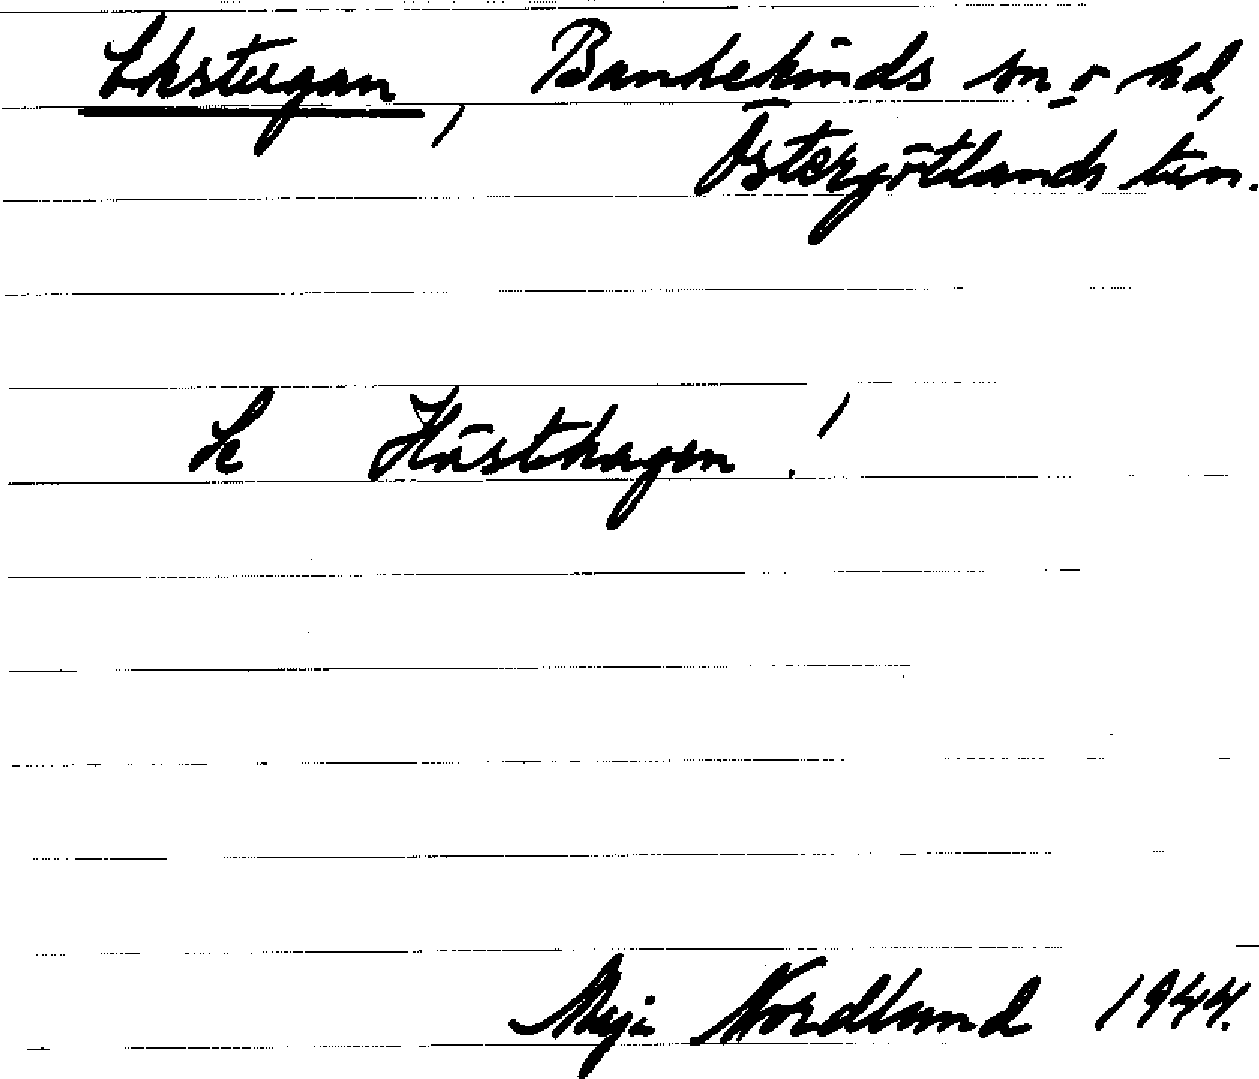 Ekstugan, Bankekinds sn o hd,
Östergötlands län.
Hästhagen!
Nordlund 1944.